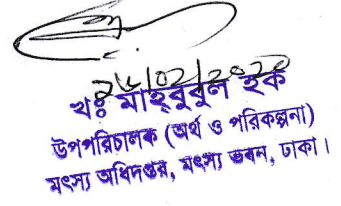 ২৬/০২/২০২০
খঃ মাহবুবুল হক
উপপরিচালক (অর্থ ও পরিকল্পনা)
মৎস্য অধিদপ্তর, মৎস্য ভবন, ঢাকা।